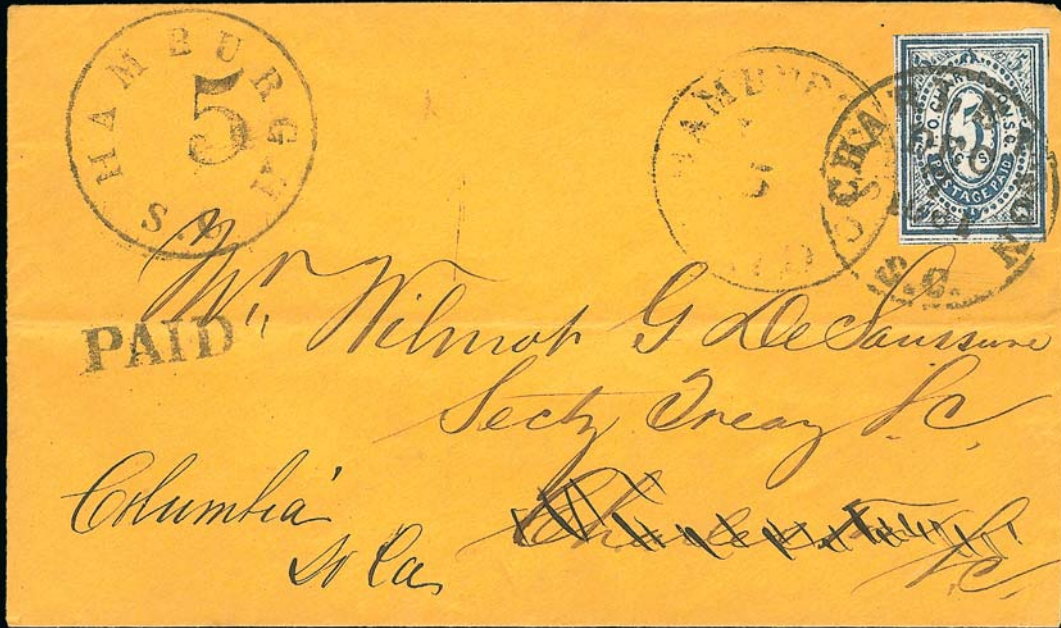 HAMBURGH
5
S.C.
HAMBURGH
5
CHARLESTON
DEC
S.C.
P.O. CHARLESTON, S.C.
5
POSTAGE PAID
PAID
Mr. Wilmot G DeSaussure
Secty Treay SC
Charleston
SC
Columbia
So Ca